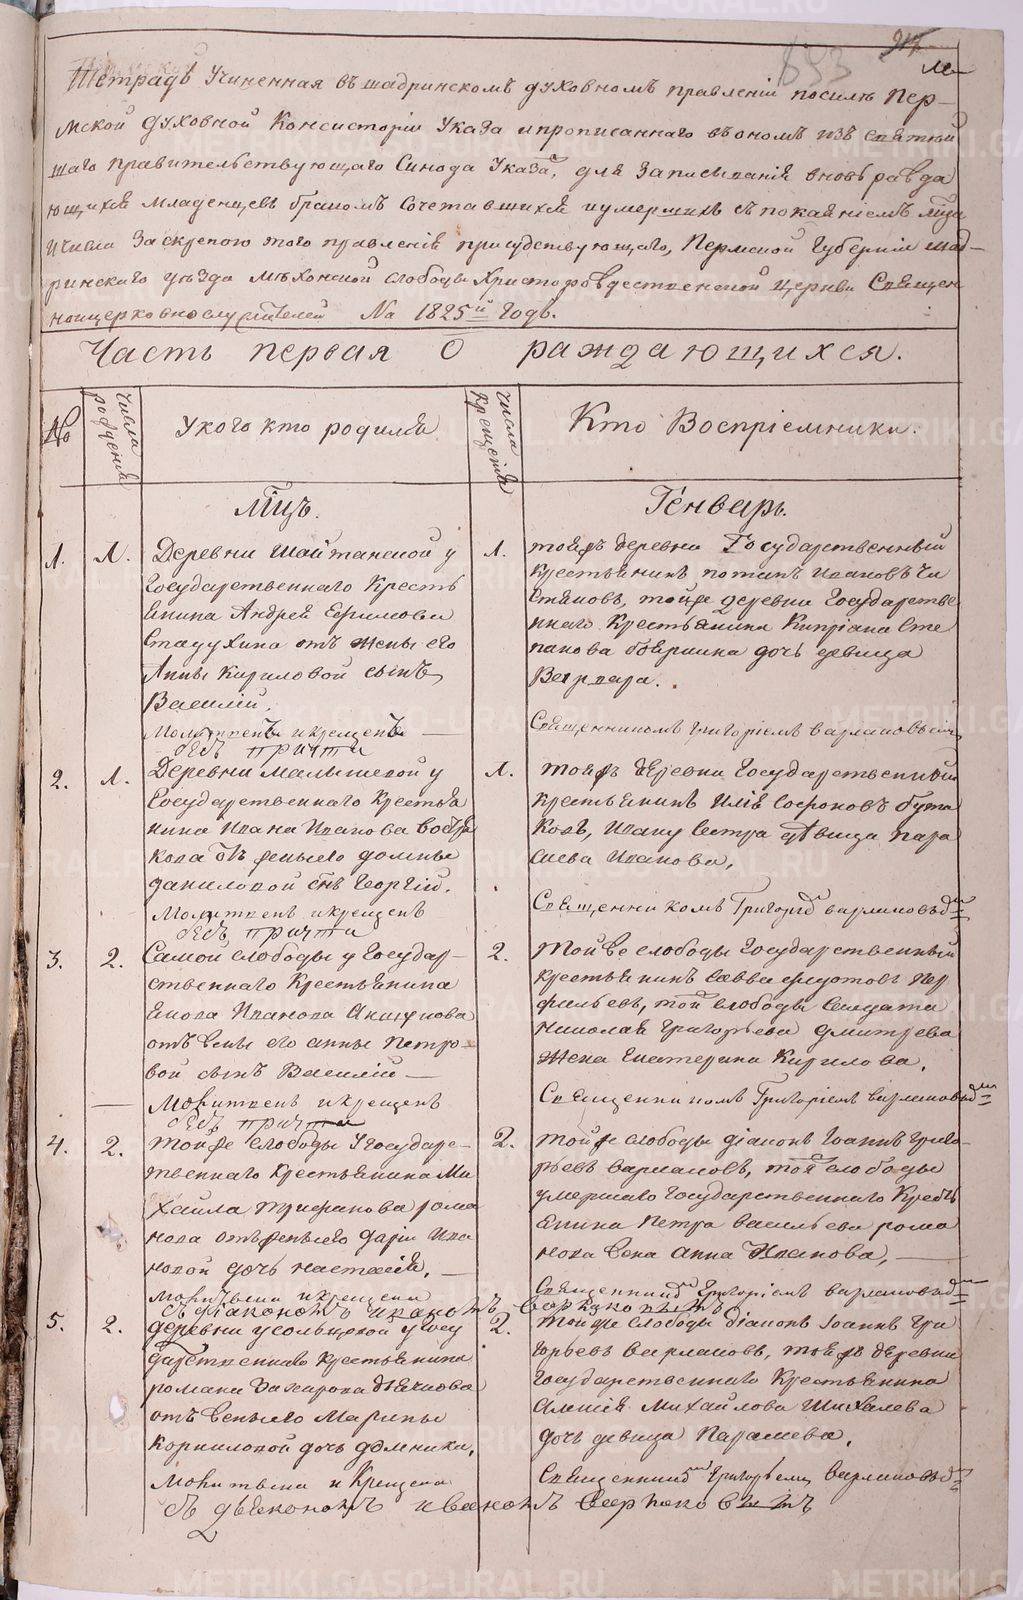 883
Тетрадь Учиненная въ шадринскомъ духовномъ правленїи посилѣ Пер-
мской Духовной Консисторїи Указа и прописаннаго въ ономъ изъ Святѣй
шаго правительствующаго Синода Указа, для Записыванїя вновь ражда
ющихся младенцевъ бракомъ сочетавшихся и умершихъ съ покаянїемъ
и числа За скрепою того правленїя присудствующаго, Пермской Губернїи шад-
ринскаго уѣзда мѣхонской слободы Христорождественской Церкви Священ
ноицерковнослужителей На 1825й Годъ.
Часть первая О раждающихся.
№
Числа рожденїя
У кого кто родился
Числа крещенїя
Кто Воспрїемники.
Мцъ. Генварь.
1. 1. Деревни Шайтанской у
Государственнаго Кресть
янина Андрея Ефимова
Стадухина отъ жены его
Анны Кириловой сынъ
Василїй.
Молитвенъ и крещенъ
безъ причта
1. тойжъ деревни Государственный
крестьянинъ потапъ Ивановъ Чи
стяковъ, тойже деревни Государстве
ннаго Крестьянина Кипрїана Сте
панова дочь девица
Варвара.
Священникомъ Григорїемъ варлаковымъ
2. 1. Деревни Малышевой у
Государственнаго Крестья
нина Ивана Иванова
отъ жены его домны
даниловой снъ Георгїй.
Молитвенъ и крещенъ
безъ причта
1. тойжъ деревни Государственный
крестьянинъ Илїя Софроновъ бута
ковъ, Ивану Сестра дѣвица Пара
скева Иванова,
Священникомъ Григорїемъ варлаковымъ
3. 2. Самой слободы у Государ-
ственнаго Крестьянина
Якова Иванова
отъ жены его анны Петро-
вой сынъ Василїй
Молитвенъ и крещенъ
безъ причта
2. Тойже слободы Государственный
крестьянинъ Савва федотовъ Пер
фильевъ, той слободы Солдата
николая Григорьева дмитрева
Жена Екатерина Кирилова.
Священникомъ Григорїемъ Варлаковымъ
4. 2. Тойже слободы У Государс-
твеннаго Крестьянина Ми
хаила Трифанова рома
нова отъ жены его дарїи Ива
новой дочь настасїя.
Молитвена и крещена
съ дїакономъ иваномъ варлаковымъ
2. тойже слободы дїаконъ Іоаннъ Григо-
рьевъ варлаковъ, тоя слободы
умершаго Государственнаго Кресть
янина Петра Васильева рома
нова Жена анна Иванова,
Священникомъ Григорїемъ варлаковымъ
5. 2. деревни усольцевой у госу
дарственнаго Крестьянина
романа Захарова
отъ жены его Марины
Корниловой дочь домника.
Молитвена и Крещена
съ дьякономъ иваномъ Варлаковымъ
2. тойже слободы дїаконъ Іоаннъ Гри
горьевъ варлаковъ, тойжъ деревни
Государственнаго Крестьянина
Алексея Михайлова Шихалева
дочь девица Параскева.
Священникомъ Григорьемъ Варлаковымъ